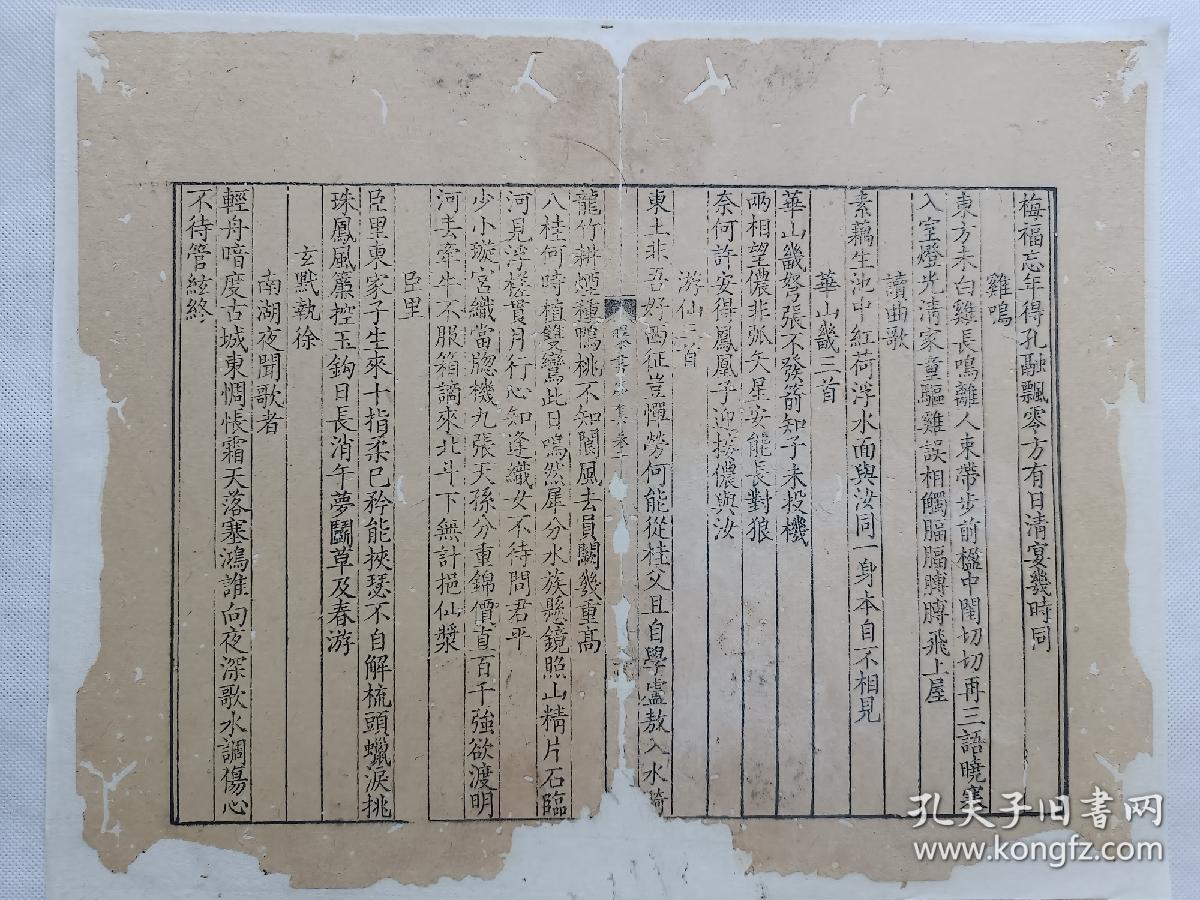 梅福忘年得孔融飄零方有日清宴幾時同
雞鳴
東方未白雞長鳴離人束帶步前楹中閨切切再三語曉寒
入室燈光清家童驅雞誤相觸膈膈膊膊飛上屋
讀曲歌
素藕生池中紅荷浮水面與汝同一身本自不相見
華山畿三首
華山畿弩張不發箭知子未投機
兩相望儂非弧矢星安能長對狼
奈何許安得鳳凰子迎接儂與汝
游仙三首
東土非吾好西征豈憚勞何能從桂父且自學盧敖入水騎
曝書亭集卷二
龍竹耕煙種鴨桃不知閬風去員闕幾重高
八桂何時植雙鸞此日鳴然犀分水族懸鏡照山精片石臨
河見浮槎貫月行心知逢織女不待問君平
少小璇宮織當牕機九張天孫分重錦價直百千強欲渡明
河去牽牛不服箱謫來北斗下無計挹仙漿
臣里
臣里東家子生來十指柔已矜能挾瑟不自解梳頭蠟淚挑
珠鳳風簾控玉鈎日長消午夢鬭草及春游
玄黓執徐
南湖夜聞歌者
輕舟暗度古城東惆悵霜天落塞鴻誰向夜深歌水調傷心
不待管絃終
孔夫子旧书网
www.kongfz.com